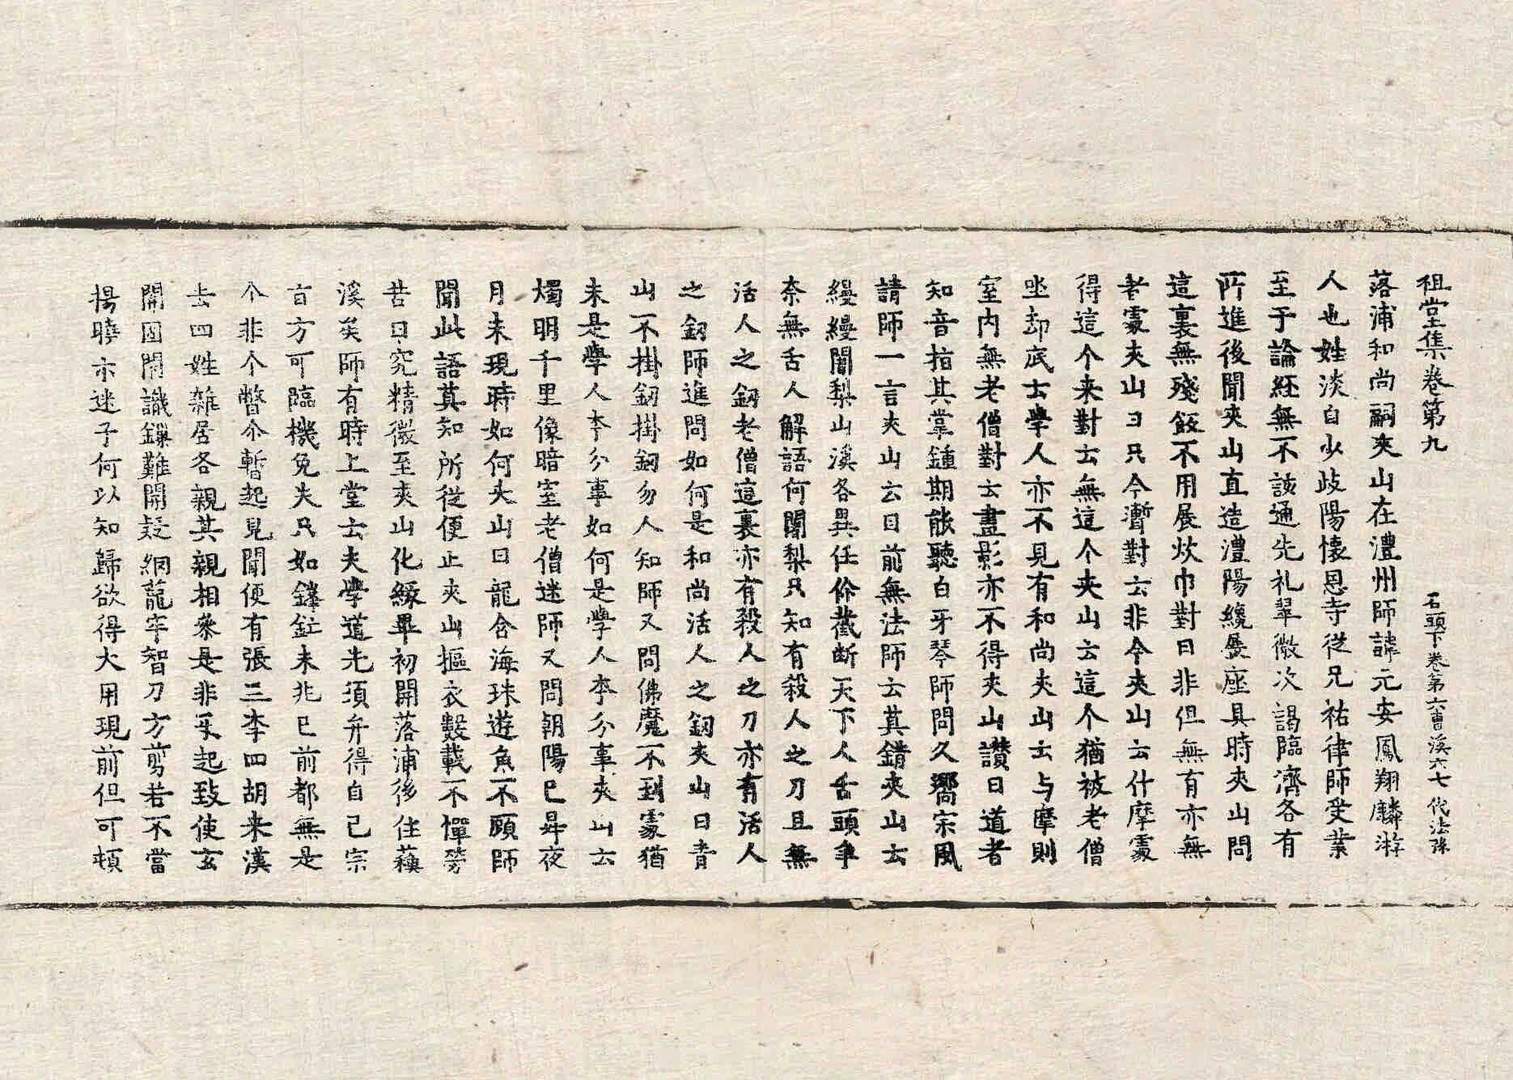 祖堂集卷第九　石頭下卷第六曹溪六七代法孫
落浦和尚嗣夾山在澧州師諱元安鳳翔麟遊
人也姓淡自少歧陽懷恩寺從兄祐律師受業
至于論經無不該通先礼翠微次謁臨濟各有
所進後聞夾山直造澧陽纔展座具時夾山問
這裏無殘飯不用展炊巾對曰非但無有亦無
者處夾山曰只今漸對云非今夾山云什摩處
得這个来對士無這个夾山云這个猶被老僧
坐却底士學人亦不見有和尚夾山士与摩則
室内無老僧對士畫影亦不得夾山讃曰道者
知音指其掌鍾期能聽白牙琴師問久嚮宗風
請師一言夾山云目前無法師云莫錯夾山士
縵縵闍梨山溪各異任伱截断天下人舌頭爭
奈無舌人解語何闍梨只知有殺人之刀且無
活人之釼老僧這裏亦有殺人之刀亦有活人
之釼師進問如何是和尚活人之釼夾山曰青
山不掛釼掛釼勿人知師又問佛魔不到處猶
未是學人本分事如何是學人本分事夾山云
燭明千里像暗室老僧迷師又問朝陽已昇夜
月未現時如何夾山曰龍含海珠遊魚不顧師
聞此語莫知所從便止夾山摳衣數載不憚勞
苦日究精微至夾山化緣畢初開落浦後住蘓
溪矣師有時上堂士夫學道先須弁得自己宗
旨方可臨機免失只如鋒鋩未兆已前都無是
个非个瞥尒暫起見聞便有張三李四胡来漢
去四姓雜居各親其親相叅是非互起致使玄
關固閇識鏁難開疑網籠牢智刀方剪若不當
揚曉示迷子何以知歸欲得大用現前但可頓